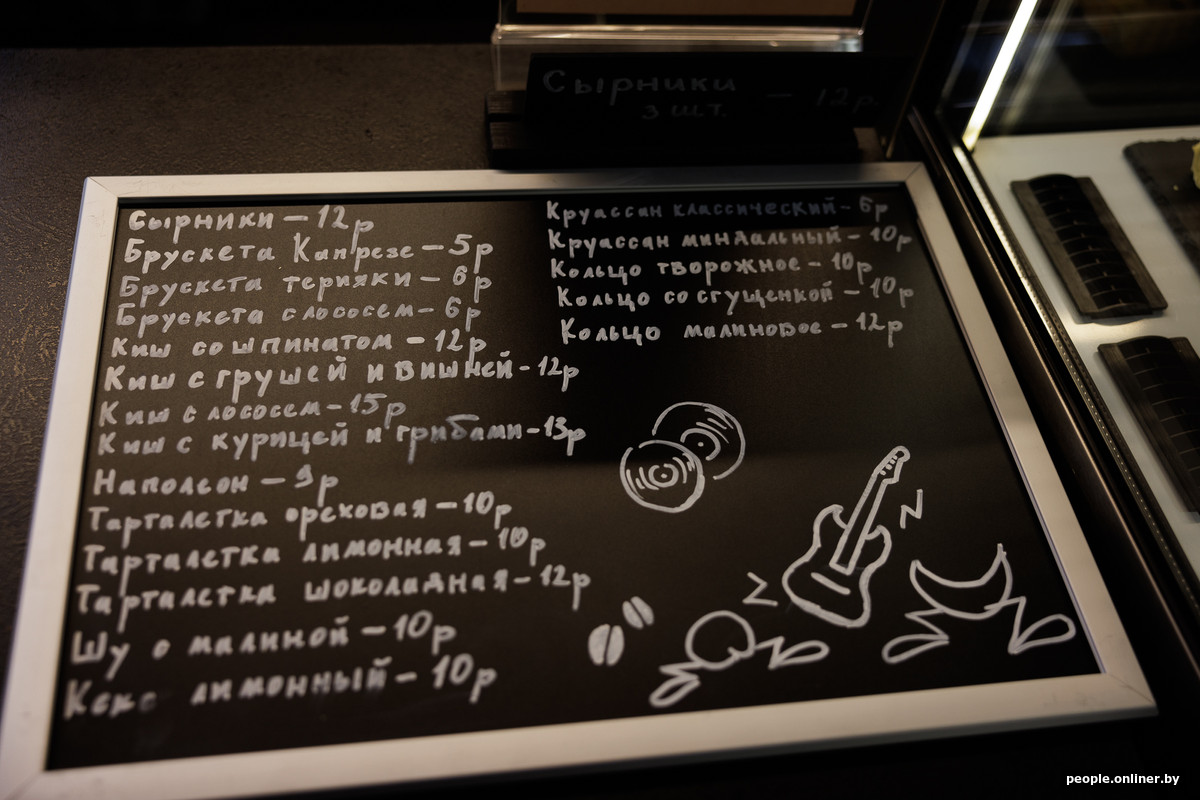 Сырники — 12р
3 шт.
Сырники — 12р
Брускета Капрезе — 5р
Брускета терияки — 6р
Брускета с лососем — 6р
Киш со шпинатом — 12р
Киш с грушей и вишней - 12р
Киш с лососем - 15р
Киш с курицей и грибами - 13р
Наполеон — 9р
Тарталетка ореховая — 10р
Тарталетка лимонная — 10р
Тарталетка шоколадная - 12р
Шу с малиной — 10р
Кекс лимонный — 10р
Круассан классический - 6р
Круассан миндальный - 10р
Кольцо творожное - 10р
Кольцо со сгущенкой — 10р
Кольцо малиновое — 12р
people.onliner.by